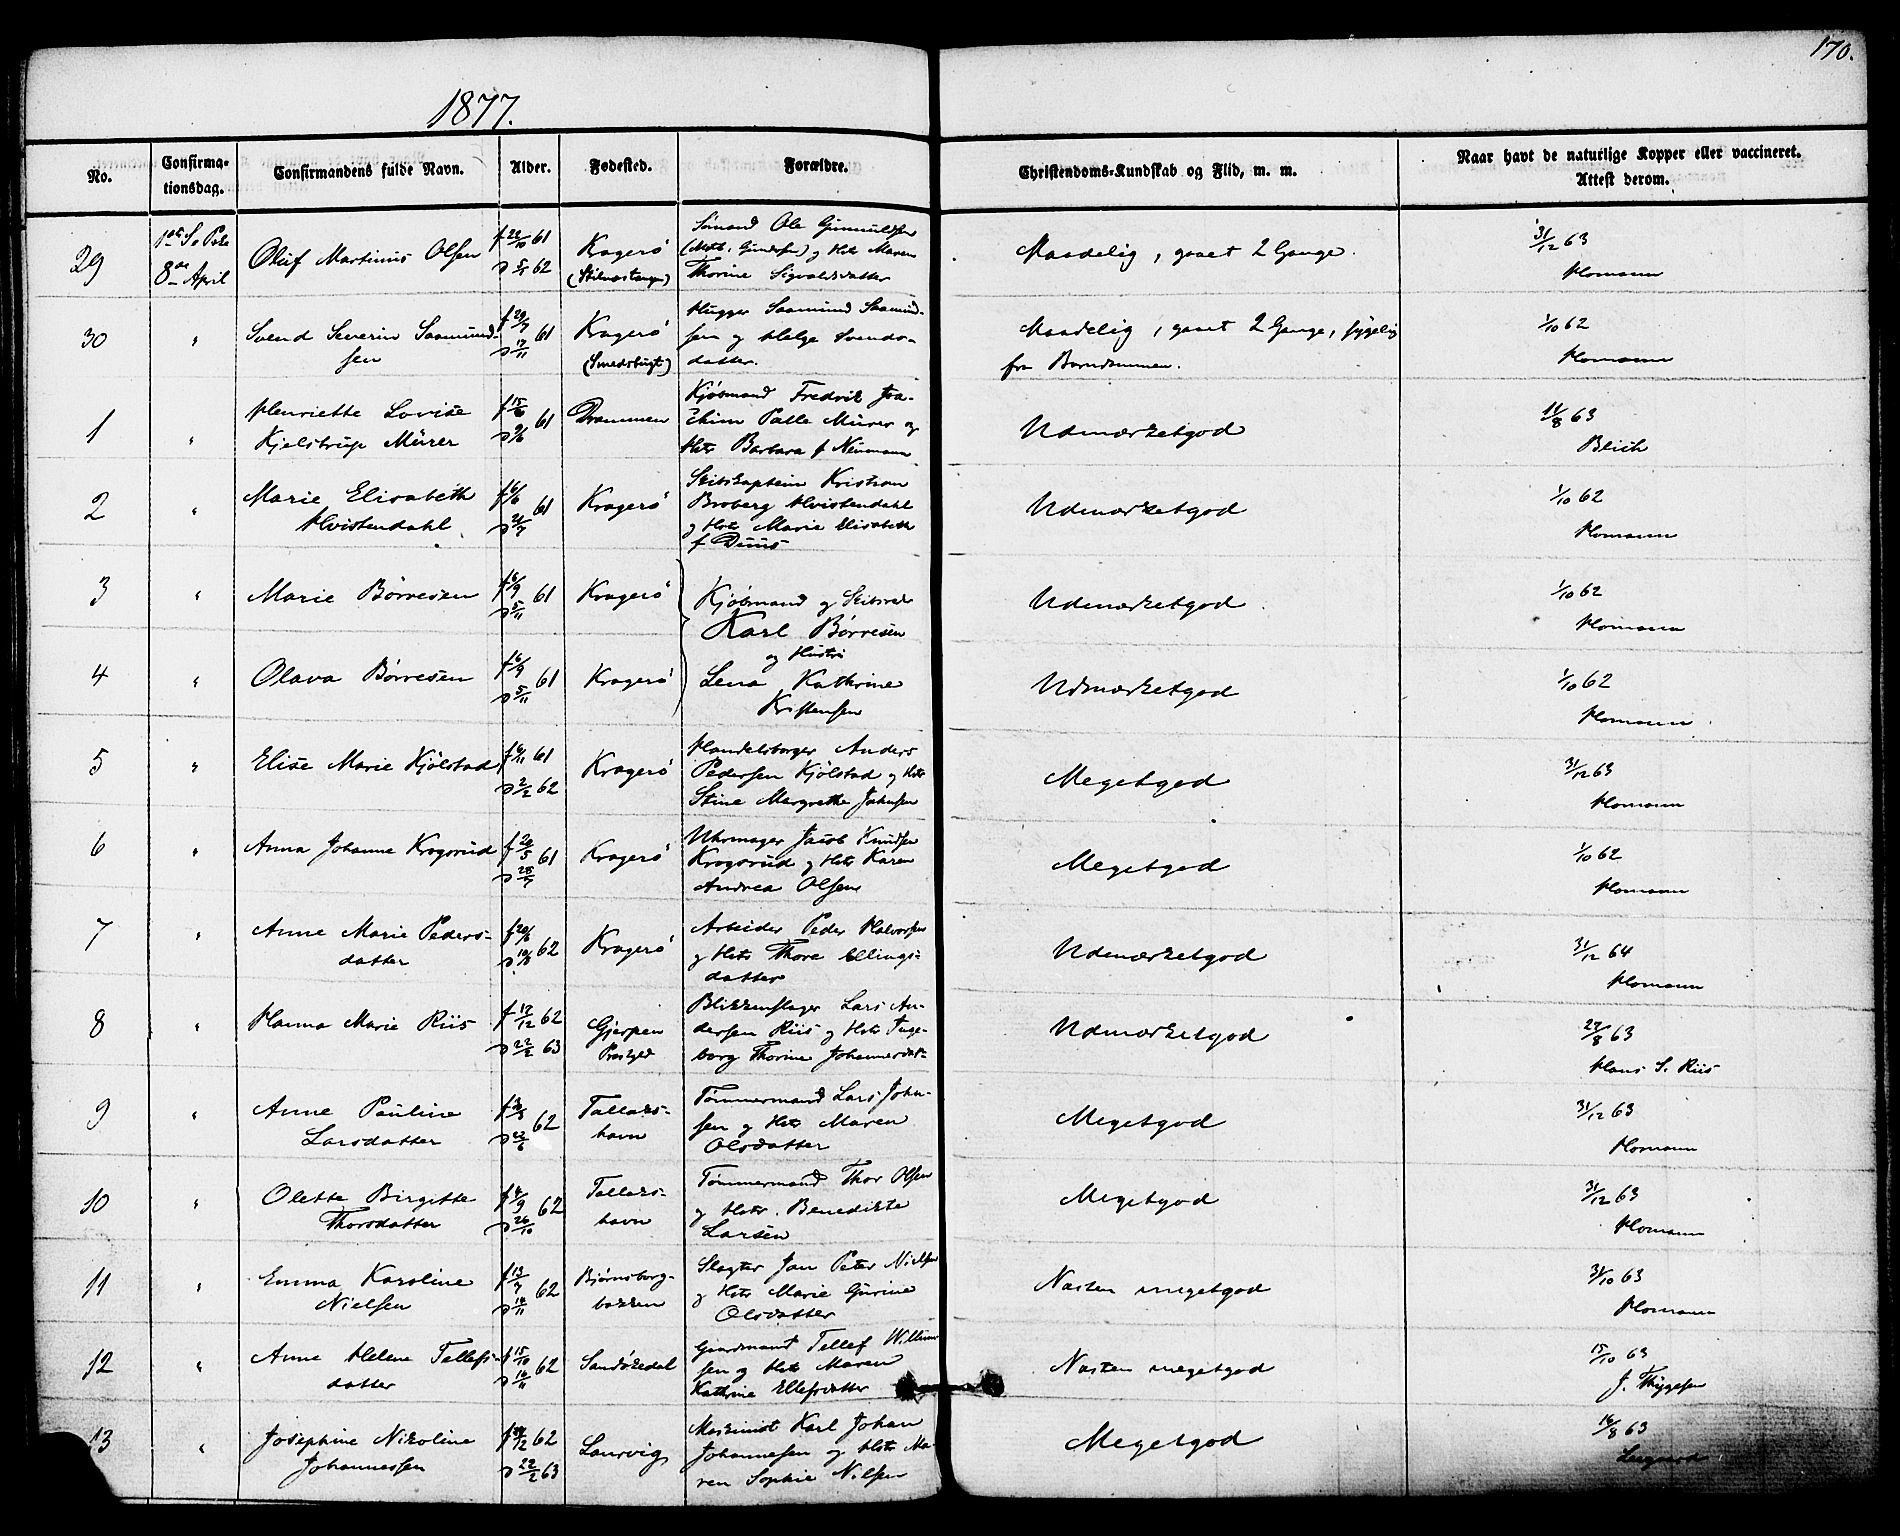 170.
1877.
No. Confirma-tionsdag. Confirmandens fulde Navn. Alder. Fødested. Forældre. Christendoms-Kundskab og Flid, m. m. Naar havt de naturlige Kopper eller vaccineret. Attest derom.
29 8de April Oluf Martinius Olsen f 22/10 61 d 5/1 62 Kragerø Sømand Ole
og Hst. Maren
Thorine Sigvaldsdatter Maadelig, gaaet 2 Gange. 31/12 63 Homann
30 " Svend Severin Saamund-
sen f 29/7 d 17/11 61 Kragerø (Smedsbugt) Hugger Saamund Saamund-
sen og Helge Svends-
datter. Maadelig, gaaet 2 Gange, sygelig
fra Barndommen. 1/10 62 Homann
1 " Henriette Lovise
Kjelstrup Mürer f 15/6 d 9/8 61 Drammen Kjøbmand Fredrik Joa-
chim Palle Mürer og
Hst Barbara f Neumann Udmærketgod 11/8 63 Blich
2 " Marie Elisabeth
Hvistendahl f 6/6 d 21/7 61 Kragerø Skibskaptein Kristian
Broberg Hvistendahl
og Hst Marie Elisabeth
f Duus Udmærketgod 1/10 62 Homann
3 " Marie Børresen f 6/9 d 5/11 61 Kragerø Kjøbmand og Skibsred
Karl Børresen
og Hustru Udmærketgod 1/10 62 Homann
4 " Olava Børresen f 6/9 d 5/11 61 Kragerø Lena Kathrine
Kristensen Udmærketgod 1/10 62 Homann
5 " Elise Marie Kjølstad f 6/11 61 d 2/2 62 Kragerø Handelsborger Anders
Pedersen Kjølstad og Hst
Stine Margrethe Johnsen Megetgod 31/12 63 Homann
6 " Anna Johanne Krogsrud f 20/5 d 28/7 61 Kragerø Uhrmager Jacob Knudsen
Krogsrud og Hst Karen
Andrea Olsen Megetgod 1/10 62 Homann
7 " Anne Marie Peders-
datter f 20/6 d 10/8 62 Kragerø Arbeider Peder Halvorsen
og Hst Thore Ellings-
datter Udmærketgod 31/12 64 Homann
8 " Hanna Marie Riis f 17/12 62 d 22/2 63 Gjerpen
Prstgjd Blikkenslager Lars An-
dersen Riis og Hst Inge-
borg Thorine Johannesdat- Udmærketgod 27/8 63 Hans S. Riis
9 " Anne Pauline
Larsdatter f 3/5 d 22/6 62 Tallaks-
havn Tømmermand Lars John-
sen og Hst Maren
Olsdatter Megetgod 31/12 63 Homann
10 " Olette Birgitte
Thorsdatter f 4/9 d 26/10 62 Tallaks-
havn Tømmermand Thor Olsen
og Hst. Benedikte
Larsen Megetgod 31/12 63 Homann
11 " Emma Karoline
Nielsen f 13/9 d 14/11 62 Bjørnsborg-
bakken Slagter Jan Peter Nielsen
og Hst Marie Gurine
Olsdatter Næsten megetgod 31/10 63 Homann
12 " Anne Helene Tellefs-
datter f 15/10 d 16/11 62 Sandøkedal Gaardmand Tellef Willum-
sen og Hst Maren
Kathrine Ellefsdatter Næsten megetgod 15/10 63 J. Thygesen
13 " Josephine Nikoline
Johannessen 62 d 22/2 63 Laurvig Maskinist Karl Johan
Johannesen og Hst Ma-
ren Sophie Nilsen Megetgod 16/8 63